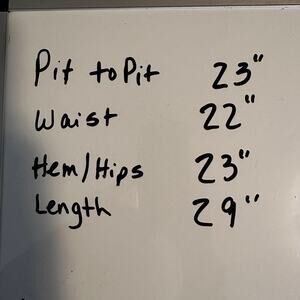 Pit to Pit 23"
Waist 22"
Hem/Hips 23"
Length 29"